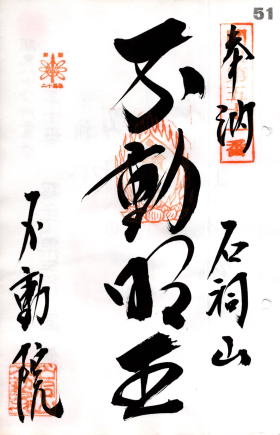 51
奉納
石祠山
不動明王
不動院